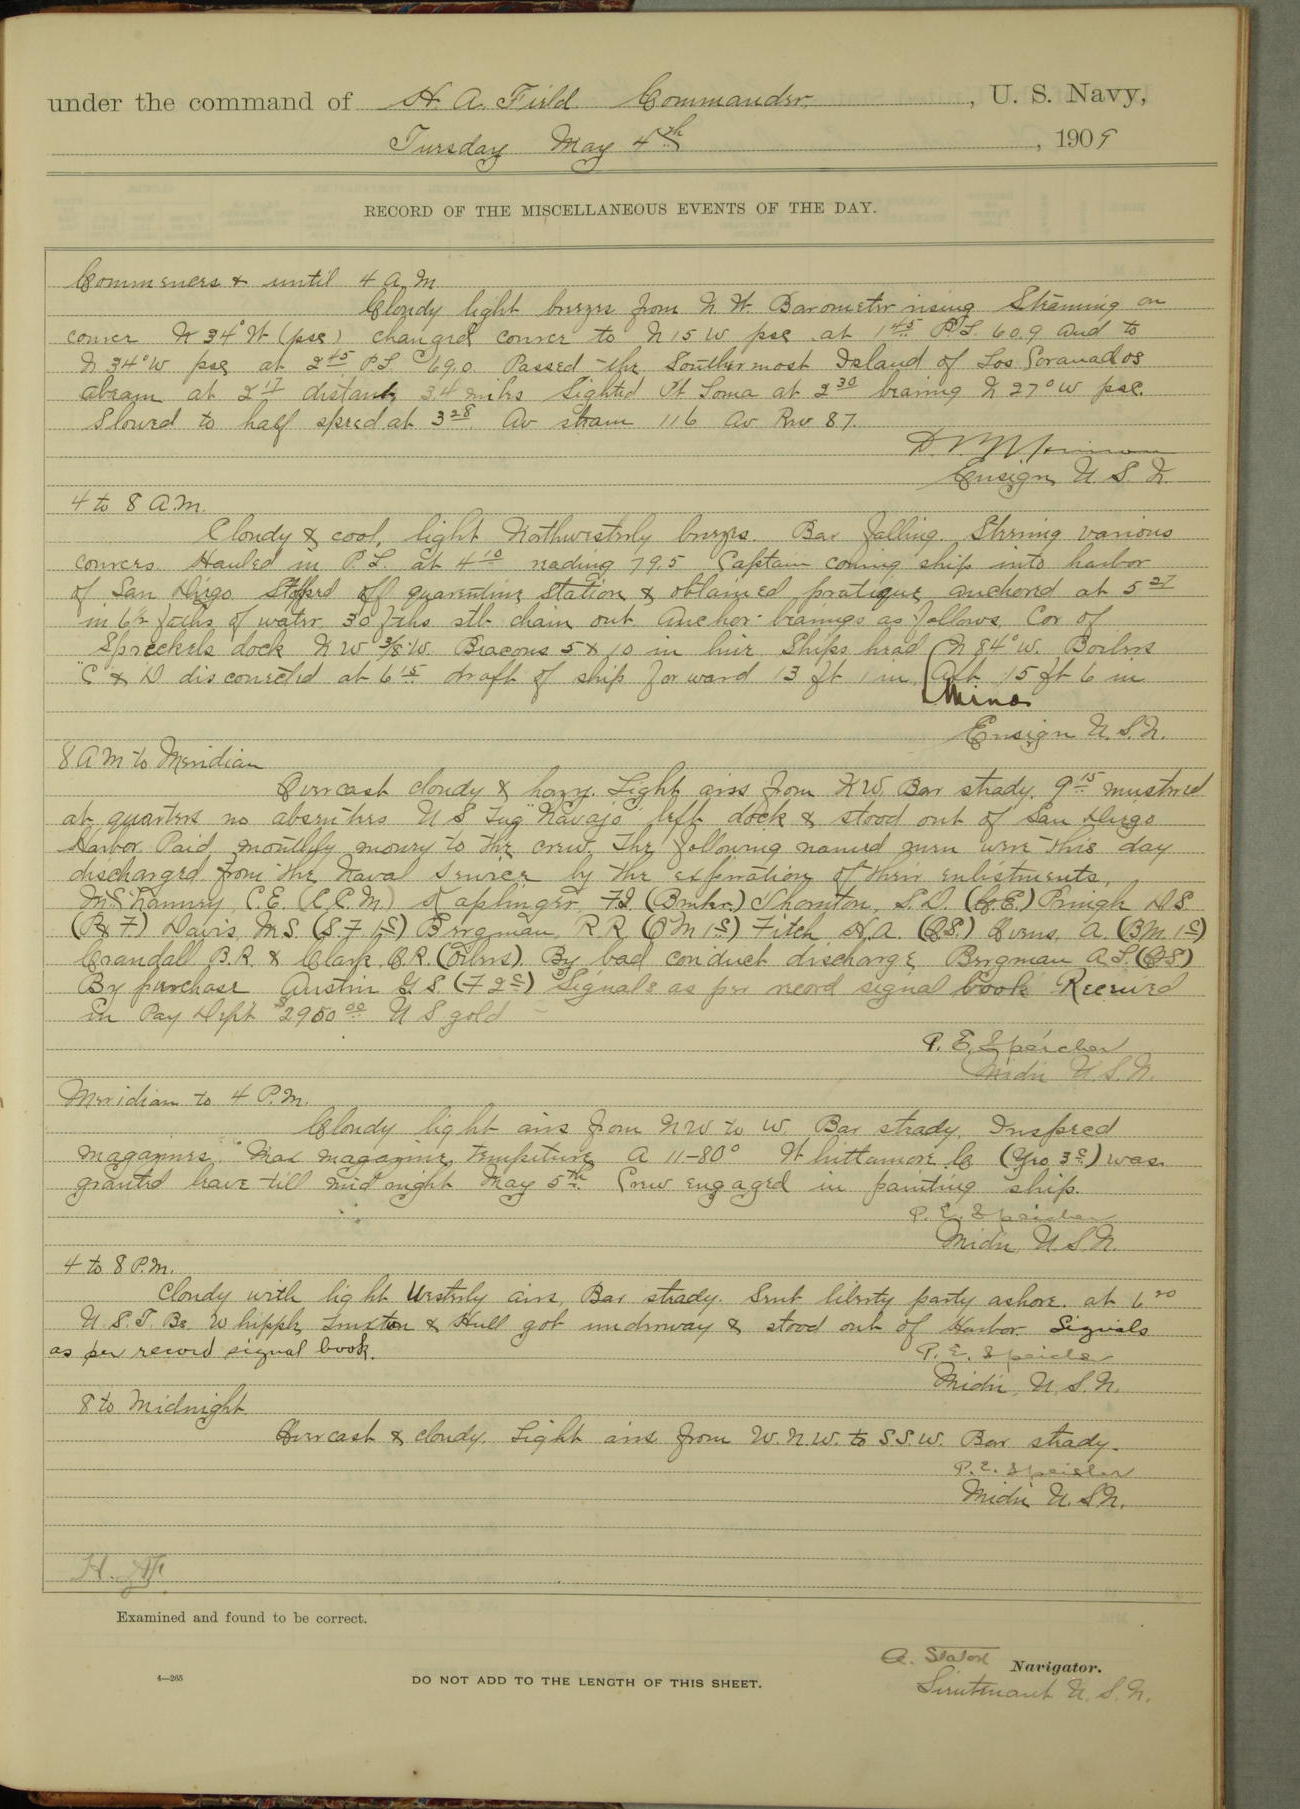 under the command of H. A. Field Commander, U. S. Navy,
Tuesday May 4th, 1909
RECORD OF THE MISCELLANEOUS EVENTS OF THE DAY.
Commences & until 4 A.M.
Cloudy light breezes from N.W. Barometer rising Steaming on
course N 34° W (psc) changed course to N 15 W psc at 1 45 P.L. 60.9 and to
N 34° W psc at 2 45 P.L. 69.0. Passed the Southermost Island of Los Coronados
abeam at 2 17 distant 3.4 miles Sighted Pt Loma at 2 30 bearing N 27° W psc.
Slowed to half speed at 3 28. Av steam 116 Av Rev 87.
Ensign U.S.N.
4 to 8 A.M.
Cloudy & cool, light Northwesterly breezes. Bar falling. Steering various
courses. Hauled in P.L. at 4 10 reading 79.5 Captain coning ship into harbor
of San Diego. Stopped off quarentine station & obtained pratique, anchored at 5 27
in 6½ faths of water 30 faths stb. chain out. Anchor bearings as follows. Cor of
Spreckels dock N W ⅜ W. Beacons 5 & 10 in line. Ships head N 84° W. Boilers
"C" & D disconected at 6 15 draft of ship forward 13 ft 1 in. Aft 15 ft 6 in
Ensign U.S.N.
8 A M to Meridian
Overcast cloudy & hazy. Light airs from N.W. Bar steady. 9 15 mustered
at quarters no absentees U S Tug "Navajo" left dock & stood out of San Diego
Harbor. Paid monthly money to the crew. The following named men were this day
discharged from the Naval Service by the expiration of their enlistments,
C.E. (C.C.M) Kaplinger, F.J. Thornton, S.D.
Davis M.S. (S.F 1 c) Bergman R.R (O M 1 c) Fitch H.A. A. (B.M. 1 c)
Crandall B.R. & Clark C.R. (Oilers). By bad conduct discharge Bergman A.L
By purchase Austin G.S. (F 2 c) Signals as per record signal book Received
in Pay Dept $2950 00 U S gold
P. E. Speicher
Midn U.S.N.
Meridian to 4 P.M.
Cloudy light airs from N W to W. Bar steady. Insped
magazines. Max magazine tempeture A 11-80° Whittamore C (Yeo 3 c) was
granted leave till midnight May 5th. Crew engaged in painting ship.
P. E. Speicher
Midn U.S.N.
4 to 8 P.M.
Cloudy with light Westerly airs, Bar steady. Sent liberty party ashore. at 6 20
U.S.T. Bs. Whipple, Truxton & Hull got underway & stood out of Harbor. Signals
as per record signal book.
P. E. Speicher
Midn, U.S.N.
8 to Midnight
Overcast & cloudy. Light airs from W.N.W. to S.S.W. Bar steady.
P. E. Speicher
Midn U.S.N.
Examined and found to be correct.
A. Staton Navigator.
4—265
DO NOT ADD TO THE LENGTH OF THIS SHEET.
Lieutenant U.S.N.